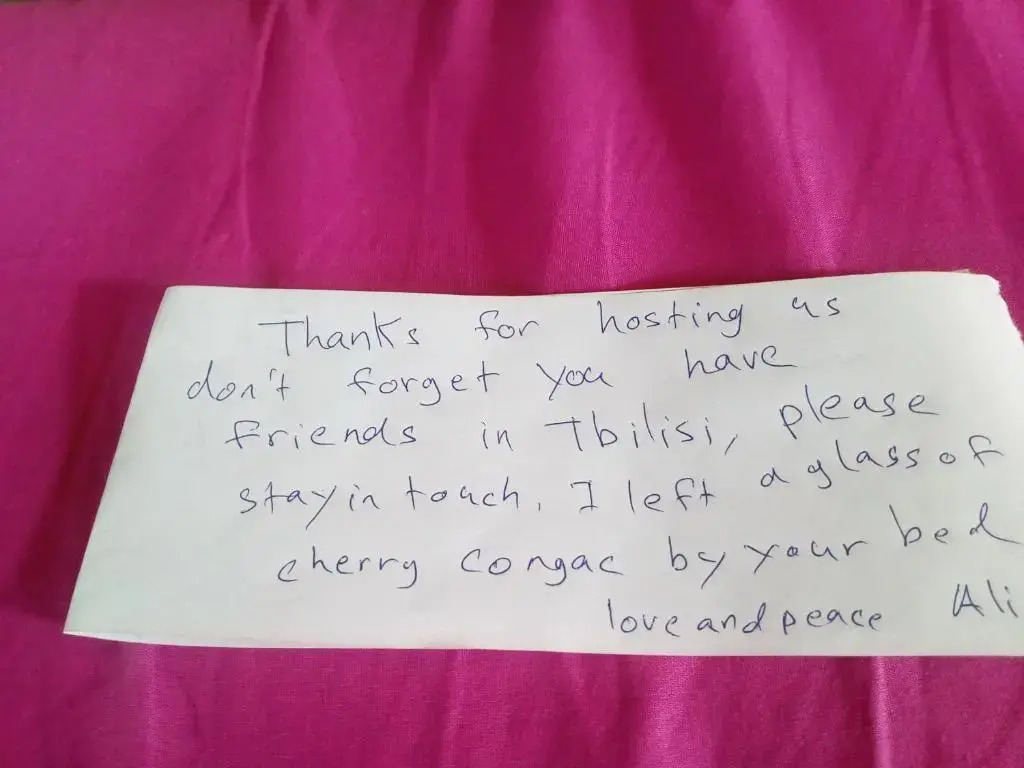 Thanks for hosting us
don't forget you have
friends in Tbilisi, please
stay in touch. I left a glass of
cherry congac by your bed
love and peace Ali